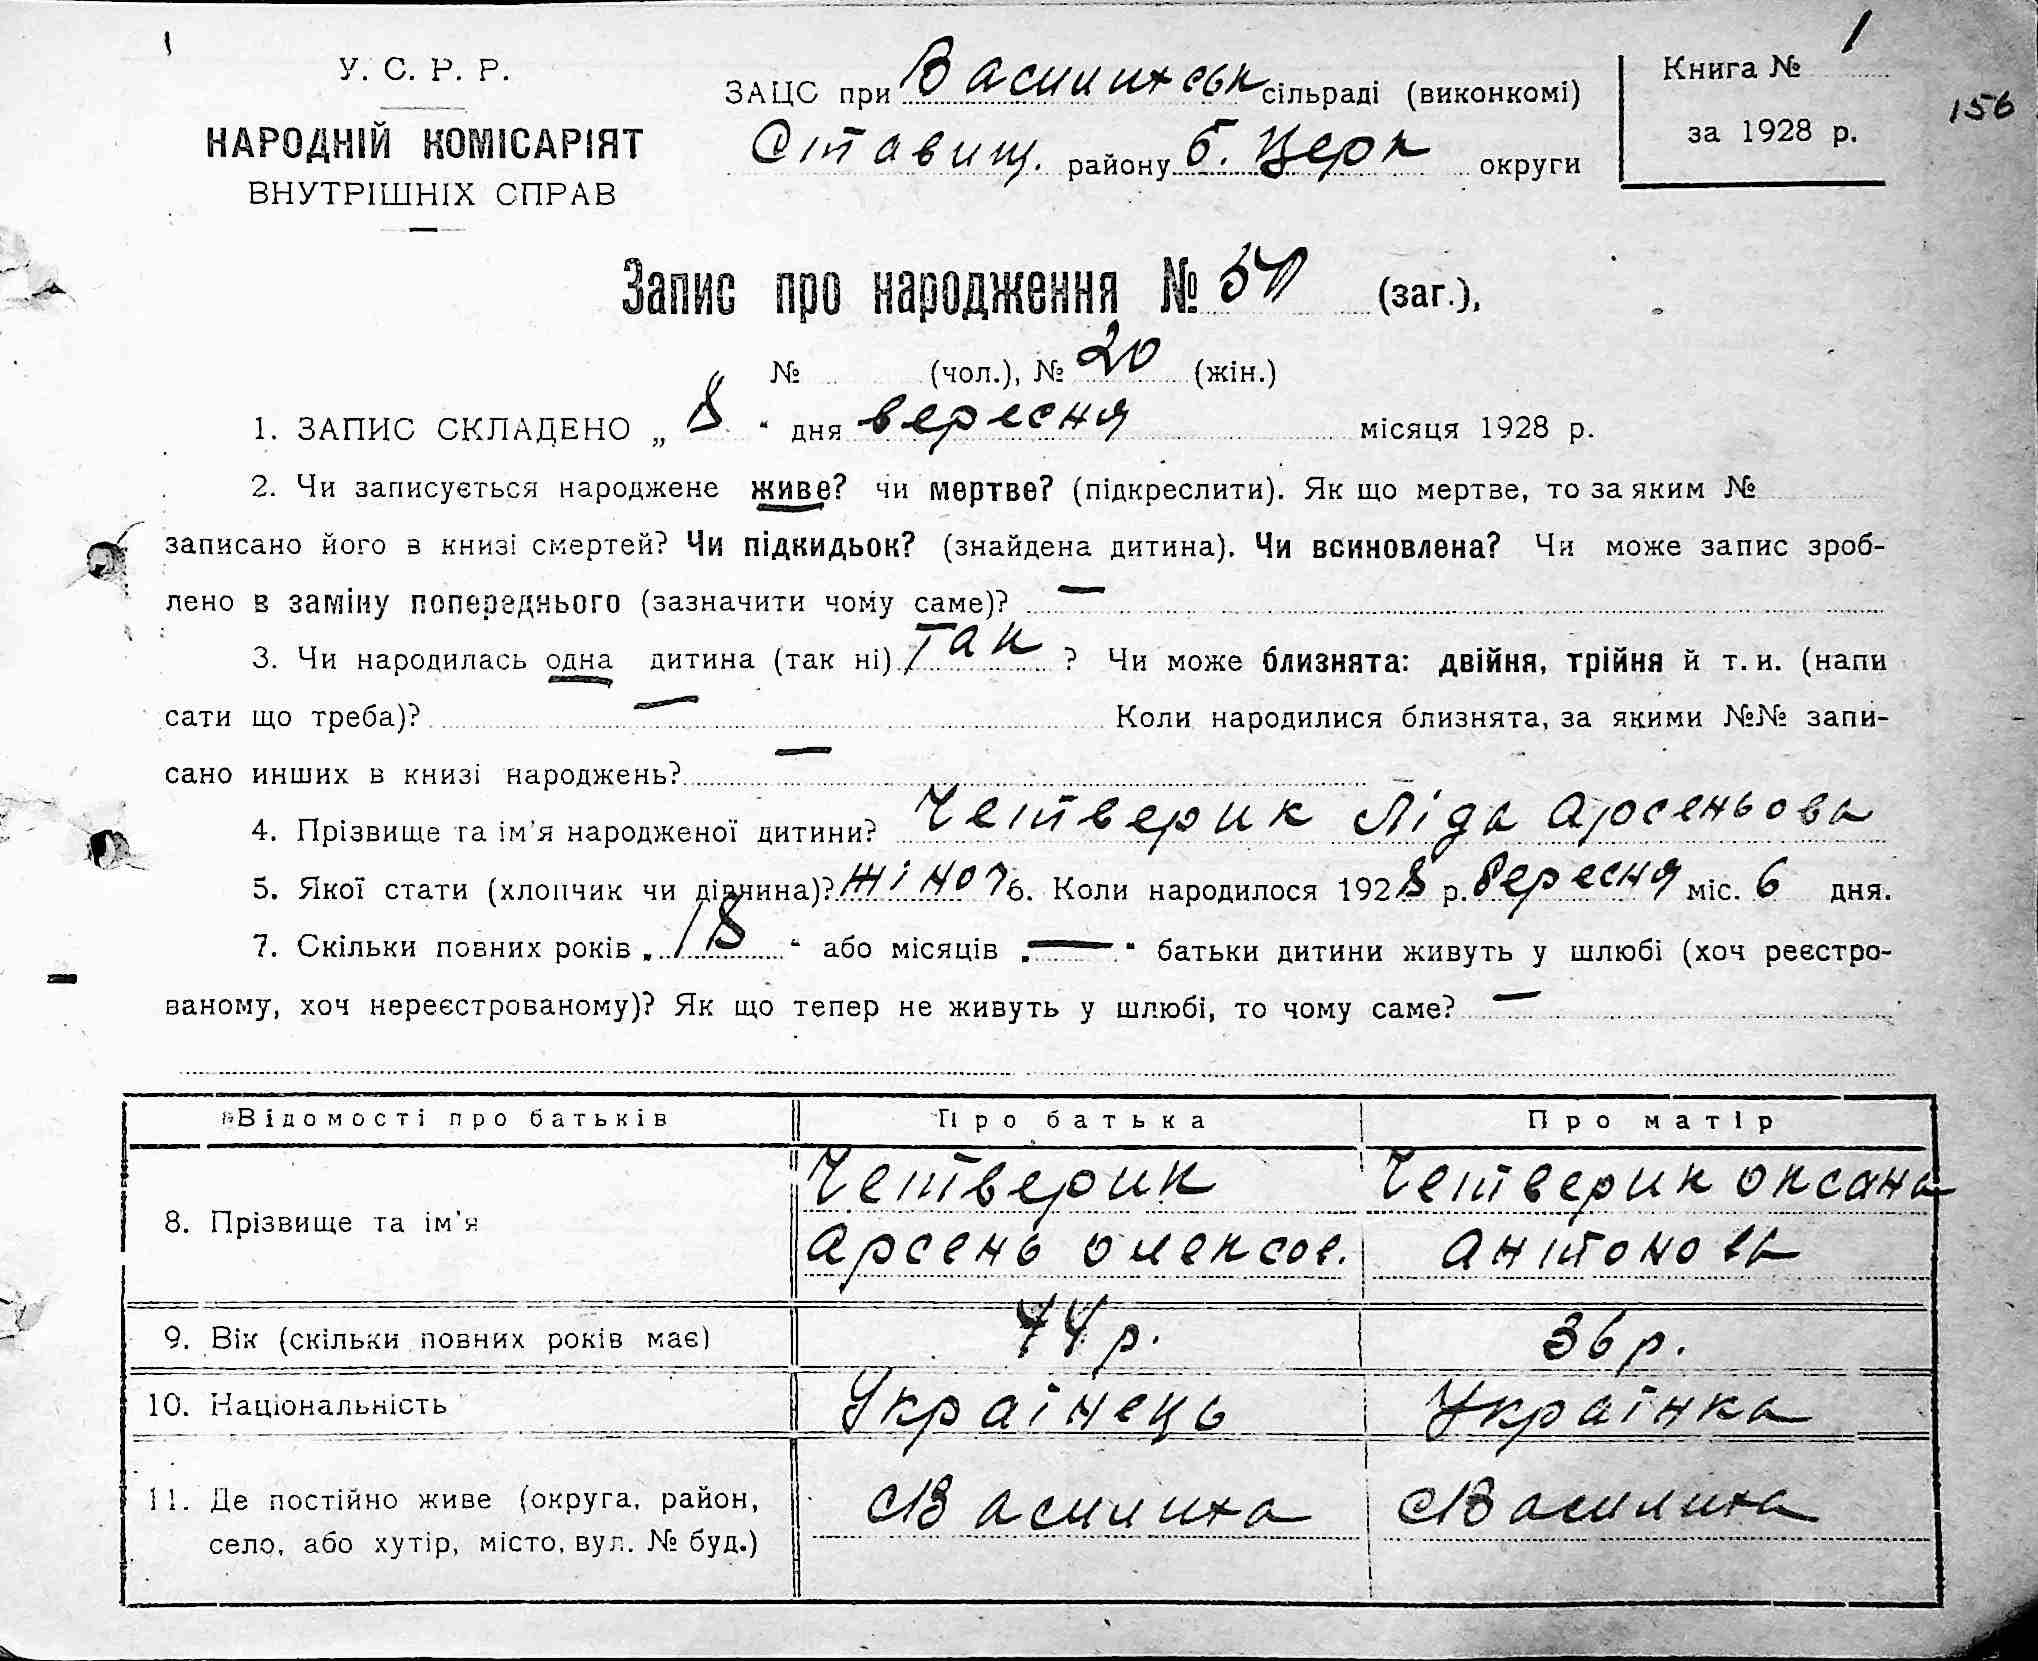 1
У. С. Р. Р.
НАРОДНІЙ КОМІСАРІЯТ
ВНУТРІШНІХ СПРАВ
ЗАЦС при Василихськ сільраді (виконкомі)
Ставищ. району Б. Церк округи
Книга № 1
за 1928 р.
156
Запис про народження № (заг.),
№ (чол.), № 20 (жін.)
1. ЗАПИС СКЛАДЕНО „ 8 “ дня вересня місяця 1928 р.
2. Чи записується народжене живе? чи мертве? (підкреслити). Як що мертве, то за яким №
записано його в книзі смертей? Чи підкидьок? (знайдена дитина). Чи всиновлена? Чи може запис зроб-
лено в заміну попереднього (зазначити чому саме)? —
3. Чи народилась одна дитина (так ні) так ? Чи може близнята: двійня, трійня й т. и. (напи
сати що треба)? — Коли народилися близнята, за якими №№ запи-
сано инших в книзі народжень? —
4. Прізвище та ім'я народженої дитини? Четверик Ліда Арсеньова
5. Якої стати (хлопчик чи дівчина)? жіноч 6. Коли народилося 1928 р. вересня міс. 6 дня.
7. Скільки повних років „ 18 “ або місяців „ — “ батьки дитини живуть у шлюбі (хоч реєстро-
ваному, хоч нереєстрованому)? Як що тепер не живуть у шлюбі, то чому саме? —
Відомості про батьків Про батька Про матір
8. Прізвище та ім'я
Четверик Арсень Олексов.
Четверик Оксана Антонова
9. Вік (скільки повних років має) 44 р. 36 р.
10. Національність Українець Українка
11. Де постійно живе (округа, район,
село, або хутір, місто, вул. № буд.)
с Василиха с Василиха